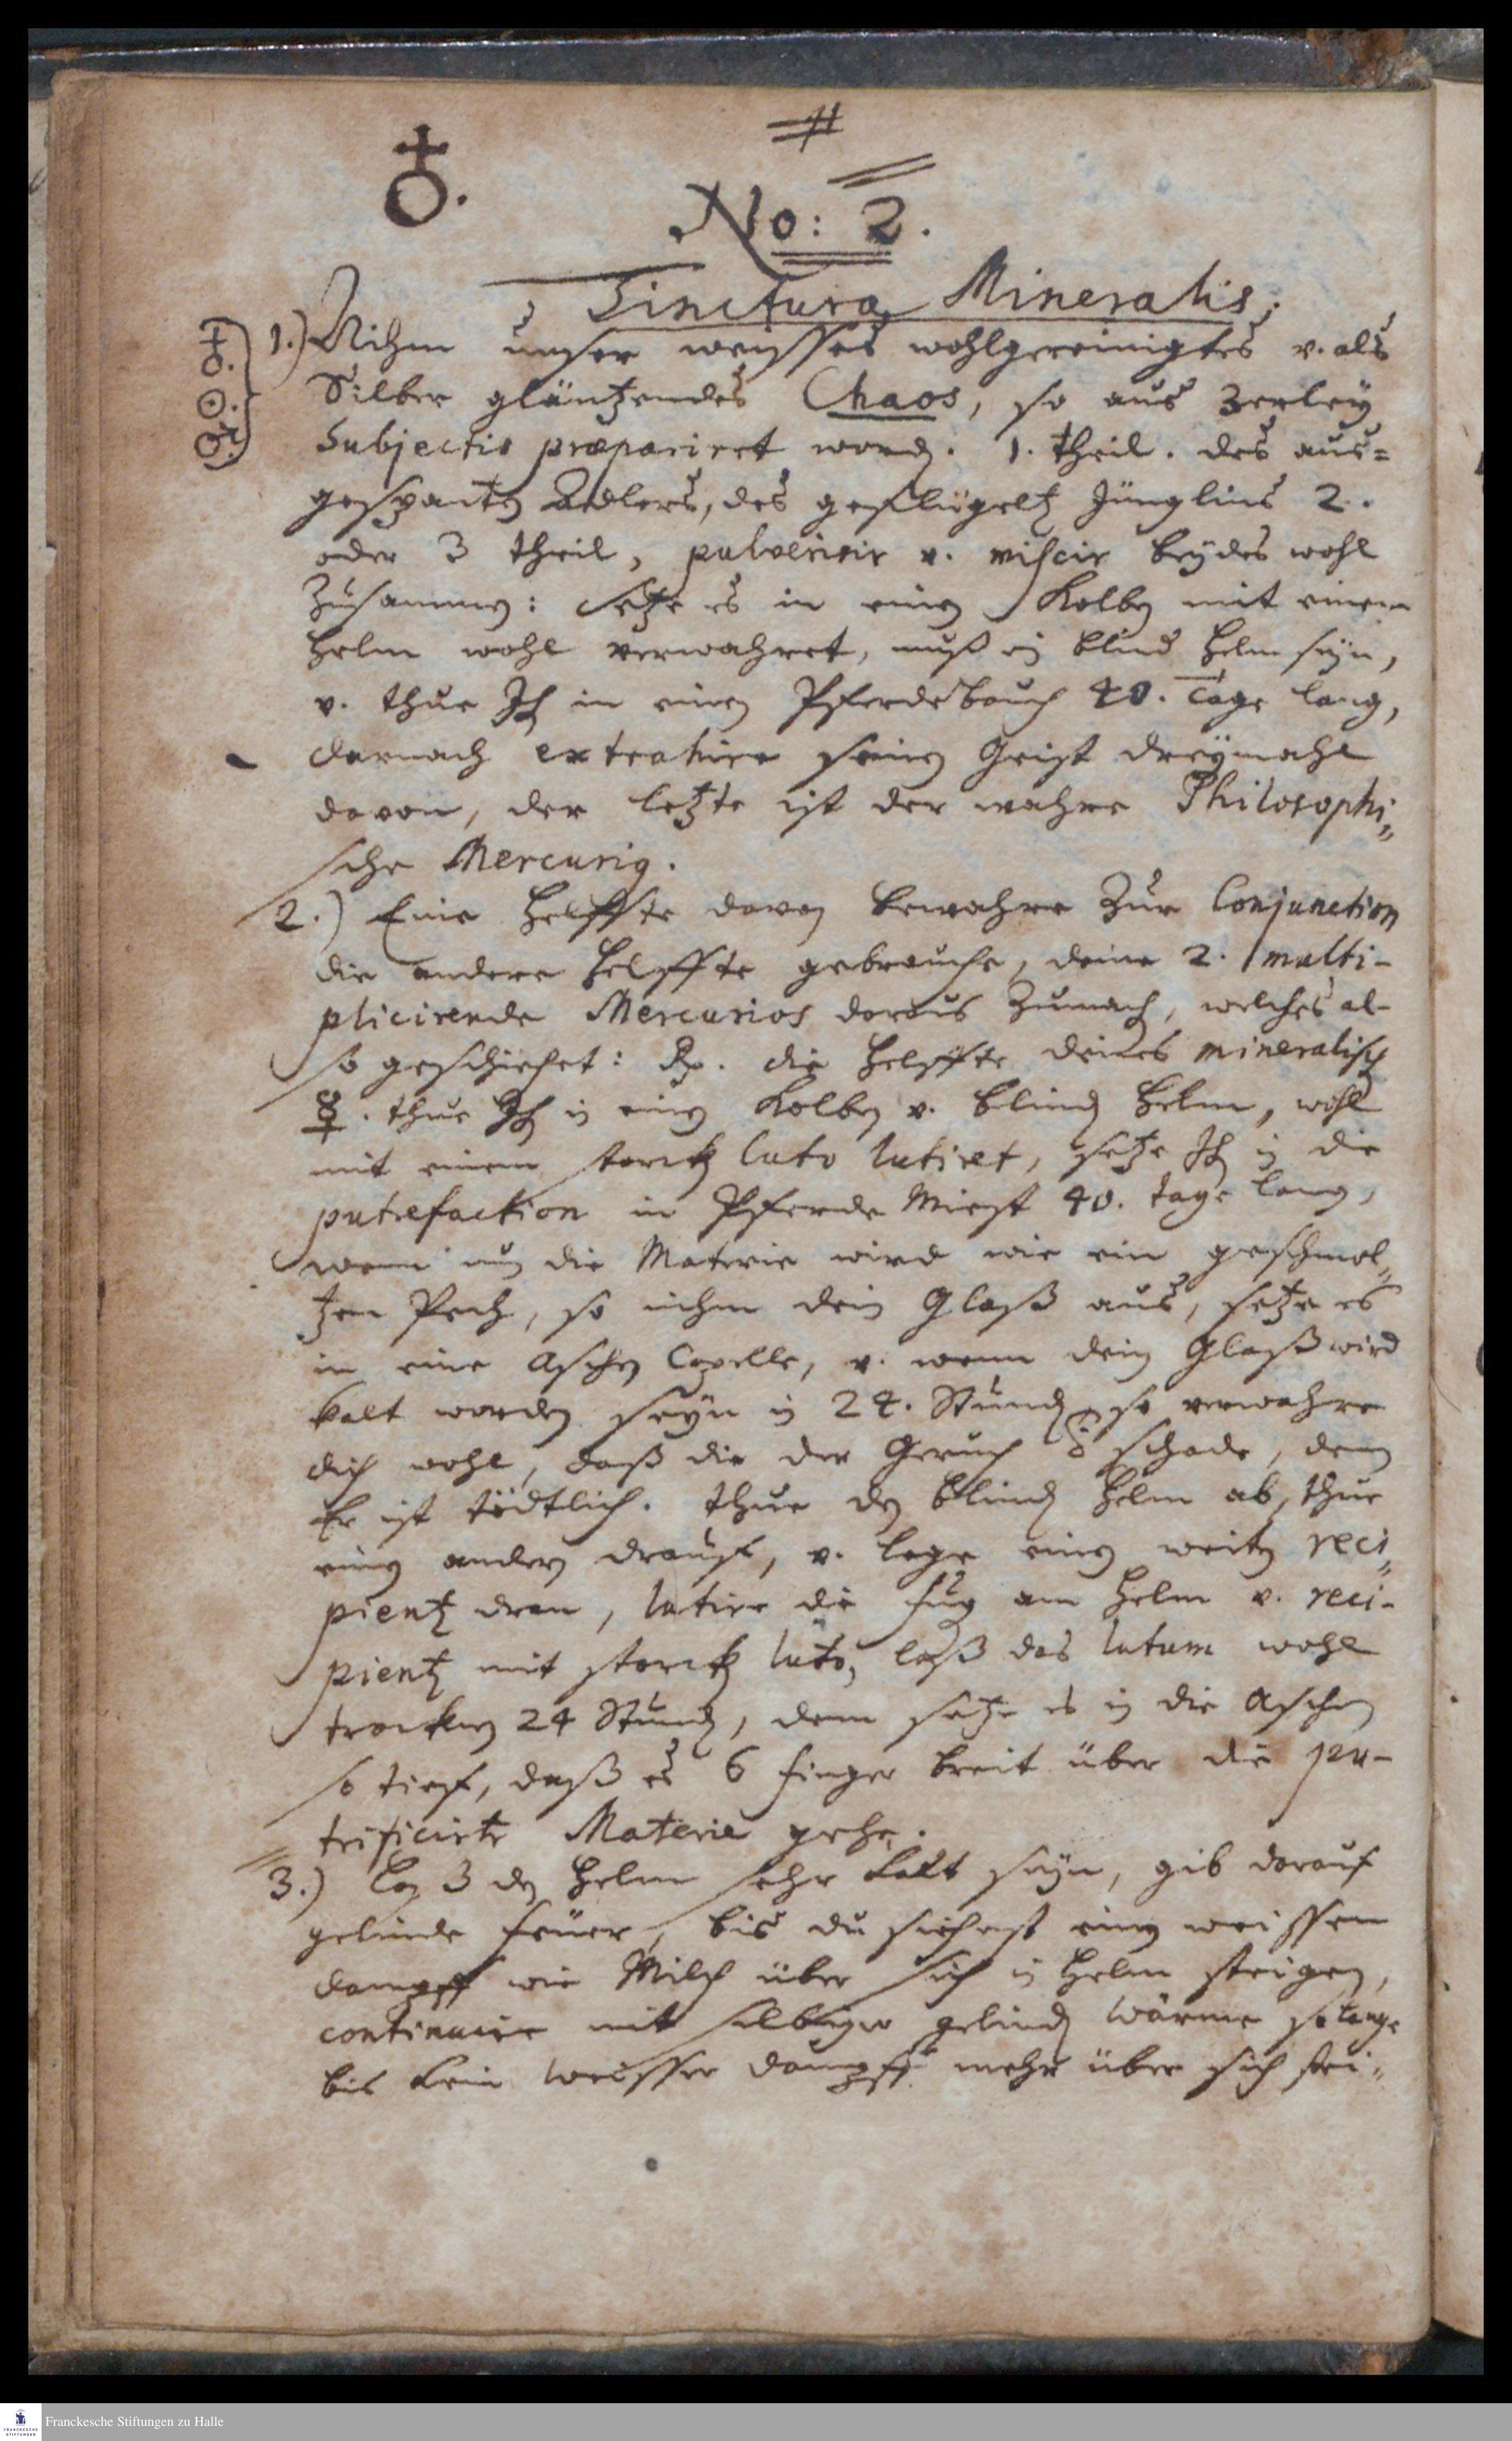 ♁.
No: 2.
Tinctura Mineralis.
♁.
☉.
♂.
1.) Nihm unser weisses wohlgereinigtes v. als
Silber gläntzendes Chaos, so aus 3erley
Subjectis præpariret word. 1. theil. des aus=
gespanten Adlers, des geflügelt Jünglins 2.
oder 3 theil, pulverisir v. miscir beydes wohl
Zusammen: Setze es in einen Kolben mit einem
Helm wohl verwahret, muß ein blind Helm seyn,
v. thue Ihn in einen Pferdebauch 40. Tage lang,
darnach extrahire seinen Geist dreymahl
davon, der letzte ist der wahre Philosophi„
sche Mercurius.
2.) Eine Helffte davon bewahre Zur Conjunction
die andere Helffte gebrauche, deine 2. multi-
plicirende Mercurios daraus Zumachen, welches al-
so geschiehet: Rp. die Helffte deines mineralisch
☿. thue Ihn in einen Kolben v. blinden Helm, wohl
mit einem starcken luto lutiret, setze Ihn in die
putrefaction in Pferde Miest 40. tage lang,
wenn nun die Materie wird wie ein geschmol„
tzen Pech, so nihm dein Glaß aus, setze es
in eine Aschen Capelle, v. wenn dein Glaß wird
kalt worden seyn in 24. Stunden, so verwahre
dich wohl, daß dir der Geruch schade, denn
Er ist tödtlich. thue den blinden Helm ab, thue
einen andern drauf, v. lege einen weiten reci„
pienten dran, lutire die fug am Helm v. reci-
pienten mit starcken luto, laß das lutum wohl
trocknen 24 Stunden, denn setze es in die Aschen
so tief, daß es 6 finger breit über die pu-
trificirte Materie gehe.
3.) Laß den Helm sehr kalt seyn, gib darauf
gelinde feuer, bis du siehest einen weissen
dampff wie Milch über sich in Helm steigen,
continuire mit selbiger gelinden Wärme so lange
bis kein weisser dampff mehr über sich stei„
Franckesche Stiftungen zu Halle